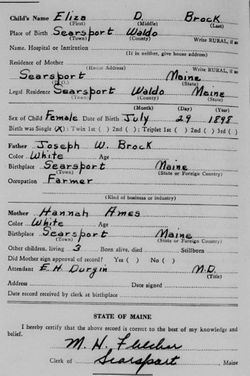 Child's Name Eliza D. Brock
(First) (Middle) (Last)
Place of Birth Searsport Waldo
(Town) (County) Write RURAL, if so
Name of Hospital or Institution
(If in neither, give house address)
Residence of Mother
(House Address)
Searsport Maine
(Town) (State) Write RURAL, if so
Legal Residence Searsport Waldo Maine
(Town) (County) (State)
(Month) (Day) (Year)
Sex of Child Female Date of Birth July 29 1898
Birth was Single (X) Twin 1st ( ) 2nd ( ); Triplet 1st ( ) 2nd ( ) 3rd ( )
Father Joseph W. Brock
Color White Age
Birthplace Searsport Maine
(Town) (State or Foreign Country)
Occupation Farmer
(Kind of business or industry)
Mother Hannah Ames
Color White Age
Birthplace Searsport Maine
(Town) (State or Foreign Country)
Other children, living 3 Born alive, died Stillborn
Did Mother sign approval of record? Yes ( ) No ( )
Attendant E. H. Durgin M.D.
Address Date signed
Date record received by clerk at birthplace
STATE OF MAINE
I hereby certify that the above record is correct to the best of my knowledge and
belief.
M. N.
Clerk of Searsport Maine